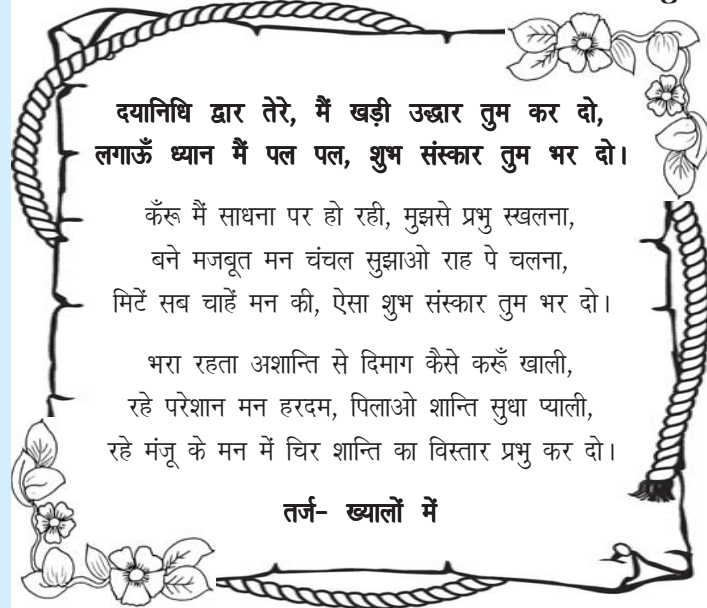 दयानिधि द्वार तेरे, मैं खड़ी उद्धार तुम कर दो,
लगाऊँ ध्यान मैं पल पल, शुभ संस्कार तुम भर दो।
कँरू मैं साधना पर हो रही, मुझसे प्रभु स्खलना,
बने मजबूत मन चंचल सुझाओ राह पे चलना,
मिटें सब चाहें मन की, ऐसा शुभ संस्कार तुम भर दो।
भरा रहता अशान्ति से दिमाग कैसे करूँ खाली,
रहे परेशान मन हरदम, पिलाओ शान्ति सुधा प्याली,
रहे मंजू के मन में चिर शान्ति का विस्तार प्रभु कर दो।
तर्ज- ख्यालों में